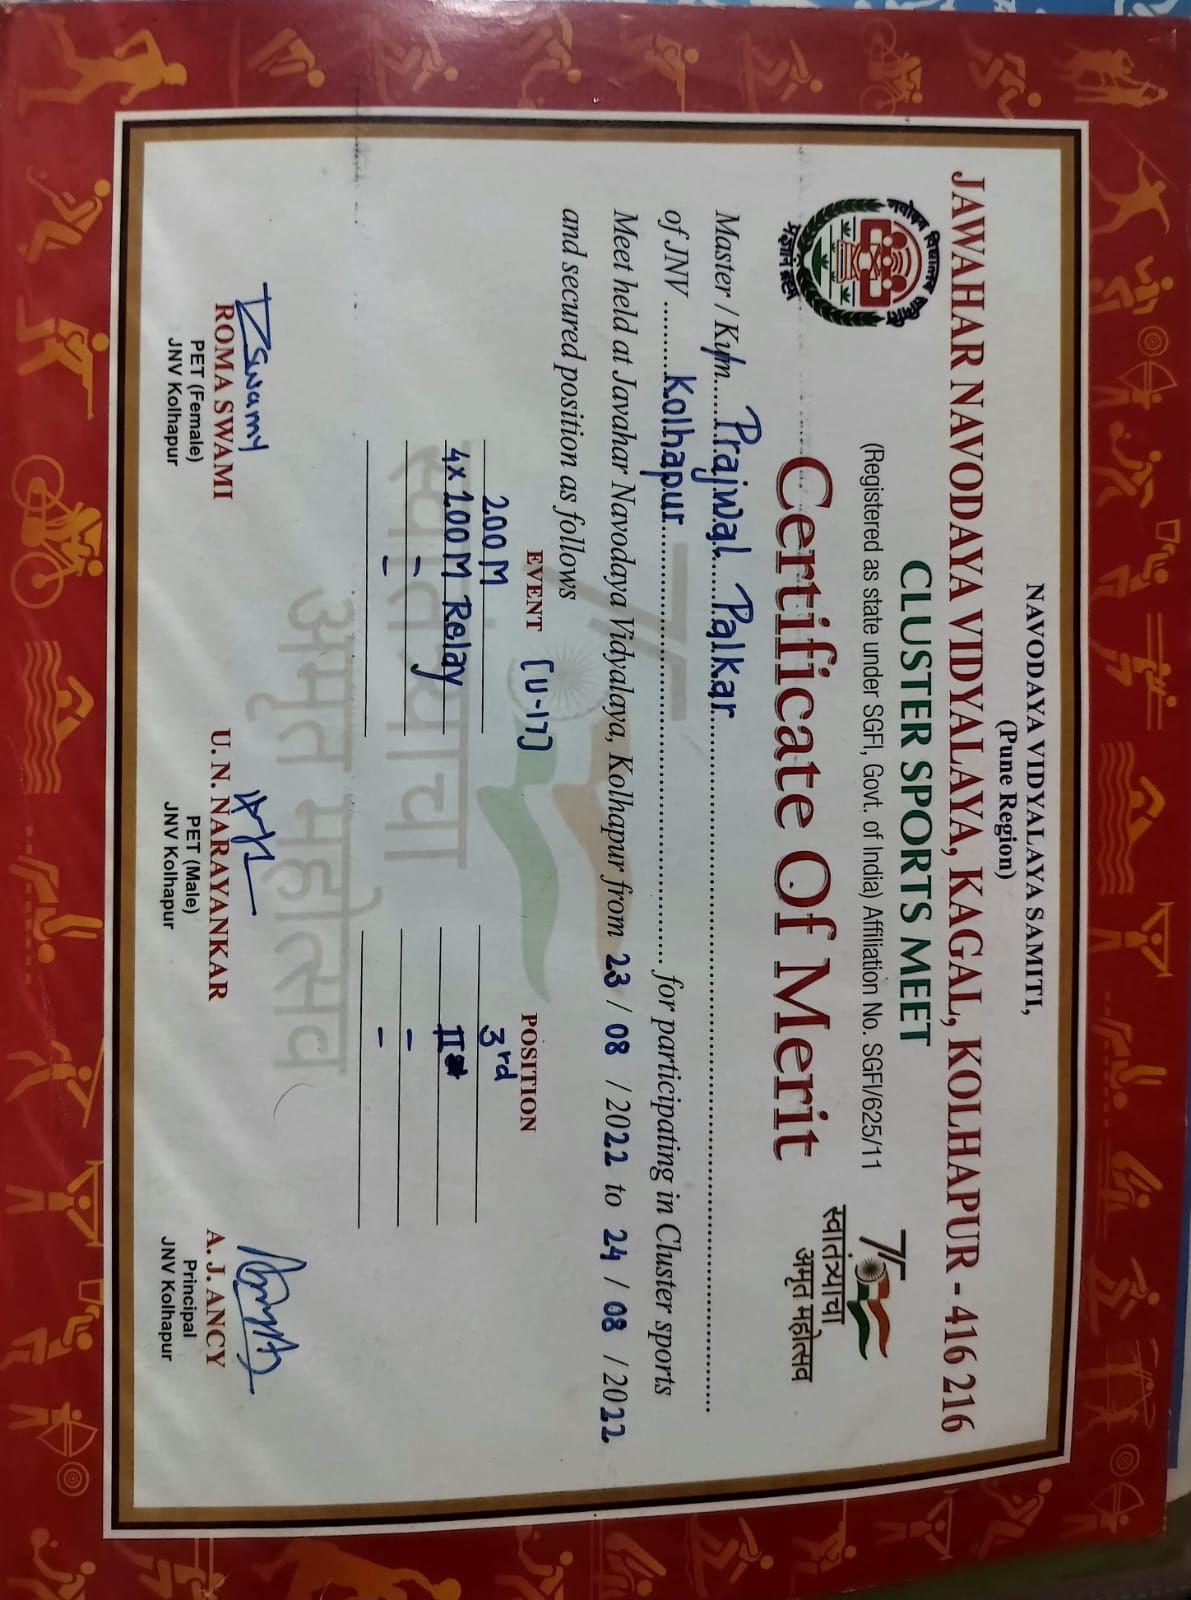 NAVODAYA VIDYALAYA SAMITI,
(Pune Region)
JAWAHAR NAVODAYA VIDYALAYA, KAGAL, KOLHAPUR - 416 216
CLUSTER SPORTS MEET
(Registered as state under SGFI, Govt. of India) Affiliation No. SGFI/625/11
नवोदय विद्यालय समिति
प्रज्ञानं ब्रह्म
75
स्वातंत्र्याचा
अमृत महोत्सव
Certificate Of Merit
Master / Kum. Prajwal Palkar
of JNV Kolhapur for participating in Cluster sports
Meet held at Javahar Navodaya Vidyalaya, Kolhapur from 23 / 08 / 2022 to 24 / 08 / 2022
and secured position as follows
EVENT [U-17] POSITION
200 M 3rd
4x100 M Relay II
- -
- -
75
स्वातंत्र्याचा
अमृत महोत्सव
Swamy
ROMA SWAMI U. N. NARAYANKAR A. J. ANCY
PET (Female) PET (Male) Principal
JNV Kolhapur JNV Kolhapur JNV Kolhapur